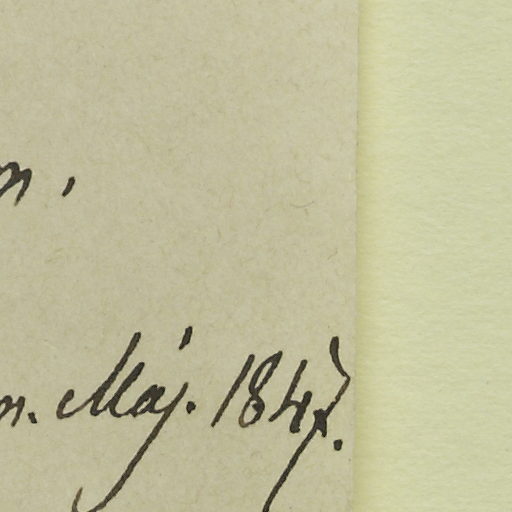 n.
n. Maj. 1847.